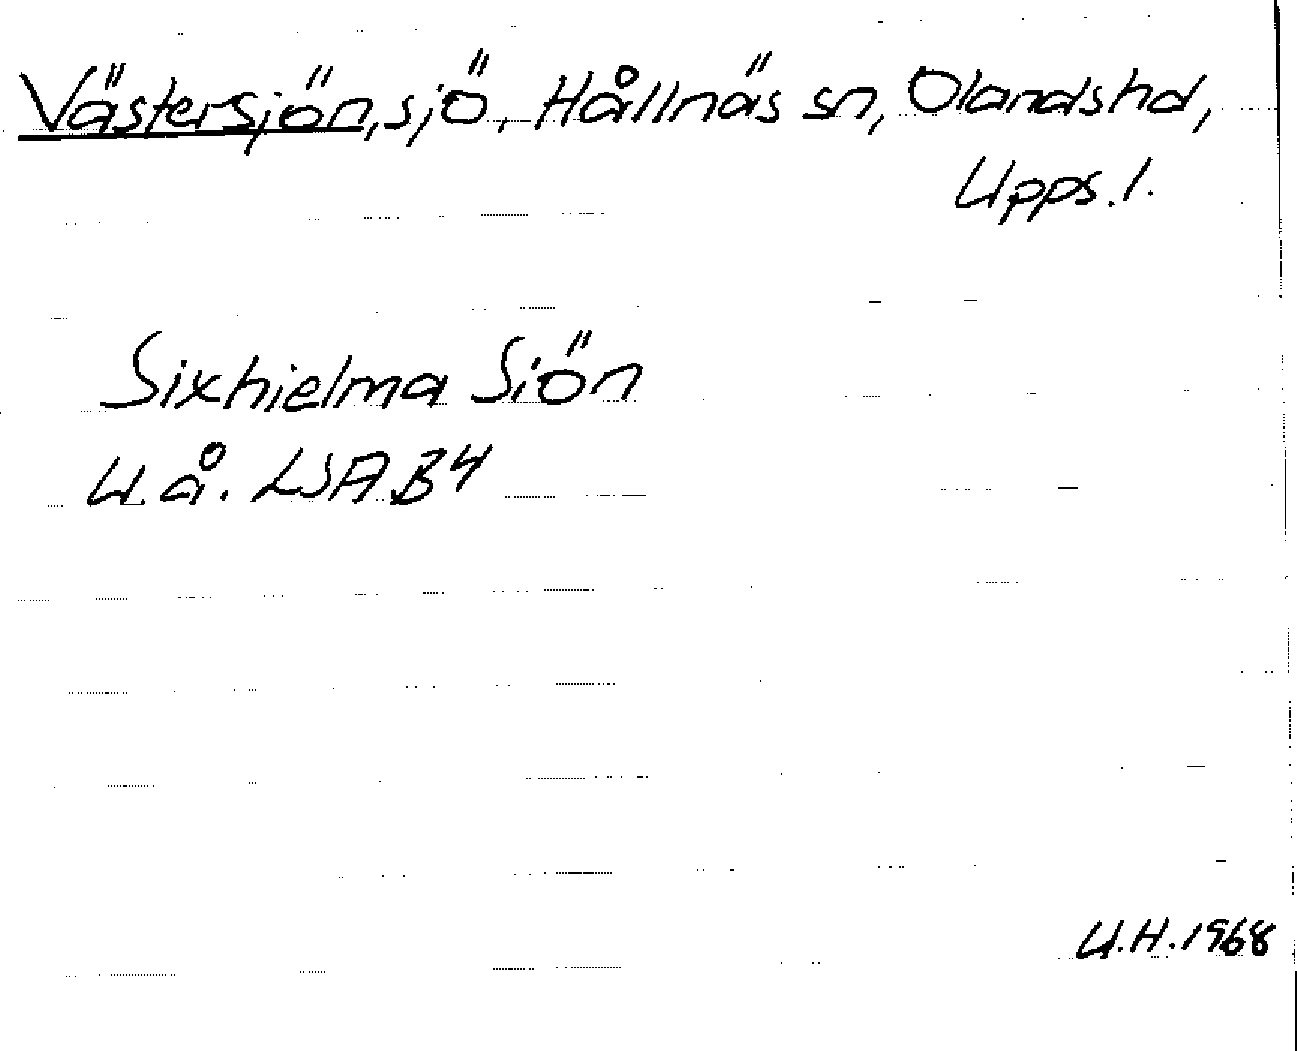 Västersjön, sjö, Hållnäs sn, Olandshd,
Upps. l.
Sixhielma Siön
U.å. LSA B4
U.H. 1968